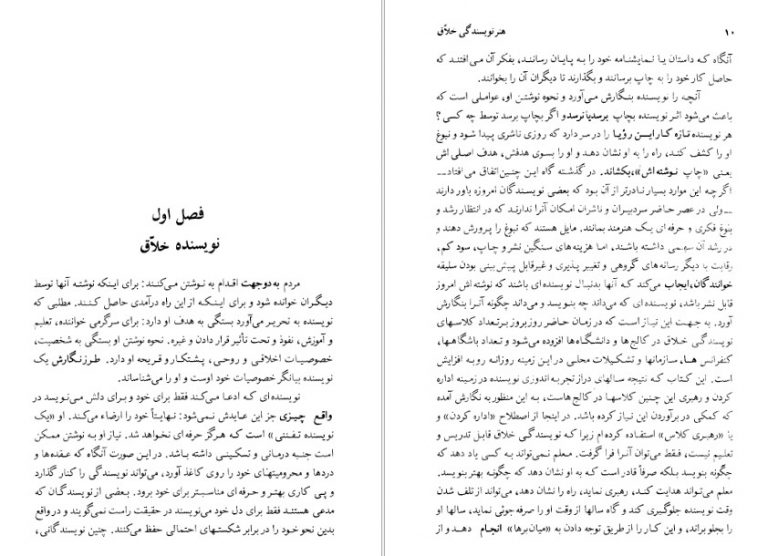 ۱۰
هنر نویسندگی خلاّق
آنگاه که داستان یا نمایشنامه خود را به پایان رساندند، بفکر آن می‌افتند که
حاصل کار خود را به چاپ برسانند و بگذارند تا دیگران آن را بخوانند.
آنچه را نویسنده بنگارش می‌آورد و نحوه نوشتن او، عواملی است که
باعث می‌شود اثر نویسنده بچاپ برسد یا نرسد و اگر بچاپ برسد توسط چه کسی؟
هر نویسنده تازه کار این رؤیا را در سر دارد که روزی ناشری پیدا شود و نبوغ
او را کشف کند، راه را به او نشان دهد و او را بسوی هدفش، هدف اصلی‌اش
یعنی «چاپ نوشته‌اش»، بکشاند. در گذشته گاه این چنین اتفاق می‌افتاد ــ
اگر چه این موارد بسیار نادرتر از آن بود که بعضی نویسندگان امروزه باور دارند
ــ ولی در عصر حاضر سردبیران و ناشران امکان آنرا ندارند که در انتظار رشد و
بلوغ فکری و حرفه‌ای یک هنرمند بمانند. مایل هستند که نبوغ را پرورش دهند و
در رشد آن سهمی داشته باشند، اما هزینه‌های سنگین نشر و چاپ، سود کم،
رقابت با دیگر رسانه‌های گروهی و تغییر پذیری و غیرقابل پیش بینی بودن سلیقه
خوانندگان، ایجاب می‌کند که آنها بدنبال نویسنده‌ای باشند که نوشته‌اش امروز
قابل نشر باشد، نویسنده‌ای که می‌داند چه بنویسد و می‌داند چگونه آنرا بنگارش
درآورد. به جهت این نیاز است که در زمان حاضر روز بروز بر تعداد کلاسهای
نویسندگی خلاق در کالج‌ها و دانشگاه‌ها افزوده می‌شود و تعداد باشگاهها،
کنفرانس ها، سازمانها و تشکیلات محلی در این زمینه روزانه رو به افزایش
است. این کتاب که نتیجه سالهای دراز تجربه اندوزی نویسنده در زمینه اداره
کردن و رهبری این چنین کلاسها در کالج هاست، به این منظور به نگارش آمده
که کمکی در برآوردن این نیاز کرده باشد. در اینجا از اصطلاح «اداره کردن» و
یا «رهبری کلاس» استفاده کرده‌ام زیرا که نویسندگی خلاق قابل تدریس و
تعلیم نیست، فقط می‌توان آنرا فرا گرفت. معلم نمی‌تواند به کسی یاد دهد که
چگونه بنویسد بلکه صرفاً قادر است که به او نشان دهد که چگونه بهتر بنویسد.
معلم می‌تواند هدایت کند، رهبری نماید، راه را نشان دهد، می‌تواند از تلف شدن
وقت نویسنده جلوگیری کند و گاه سالها از وقت او را صرفه‌جوئی نماید، سالها او
را بجلو براند، و این کار را از طریق توجه دادن به «میان‌برها» انجام دهد و از
فصل اول
نویسنده خلاّق
مردم به دو جهت اقدام به نوشتن می‌کنند: برای اینکه نوشته آنها توسط
دیگران خوانده شود و برای اینکه از این راه درآمدی حاصل کنند. مطلبی که
نویسنده به تحریر می‌آورد بستگی به هدف او دارد: برای سرگرمی خواننده، تعلیم
و آموزش، نفوذ و تحت تأثیر قرار دادن و غیره. نحوه نوشتن او بستگی به شخصیت،
خصوصیات اخلاقی و روحی، پشتکار و قریحه او دارد. طرز نگارش یک
نویسنده بیانگر خصوصیات خود اوست و او را می‌شناساند.
نویسنده‌ای که ادعا می‌کند فقط برای خود و برای دلش می‌نویسد در
واقع چیزی جز این عایدش نمی‌شود: نهایتاً خود را ارضاء می‌کند. او «یک
نویسنده تفننی» است که هرگز حرفه‌ای نخواهد شد. نیاز او به نوشتن ممکن
است جنبه درمانی و تسکینی داشته باشد. در این صورت آنگاه که عقده‌ها و
دردها و محرومیتهای خود را روی کاغذ آورد، می‌تواند نویسندگی را کنار گذارد
و پی کاری بهتر و حرفه‌ای مناسبتر برای خود برود. بعضی از نویسندگان که
مدعی هستند فقط برای خود و دل خود می‌نویسند در حقیقت راست نمی‌گویند و در واقع
بدین نحو خود را در برابر شکستهای احتمالی حفظ می‌کنند. چنین نویسندگانی،